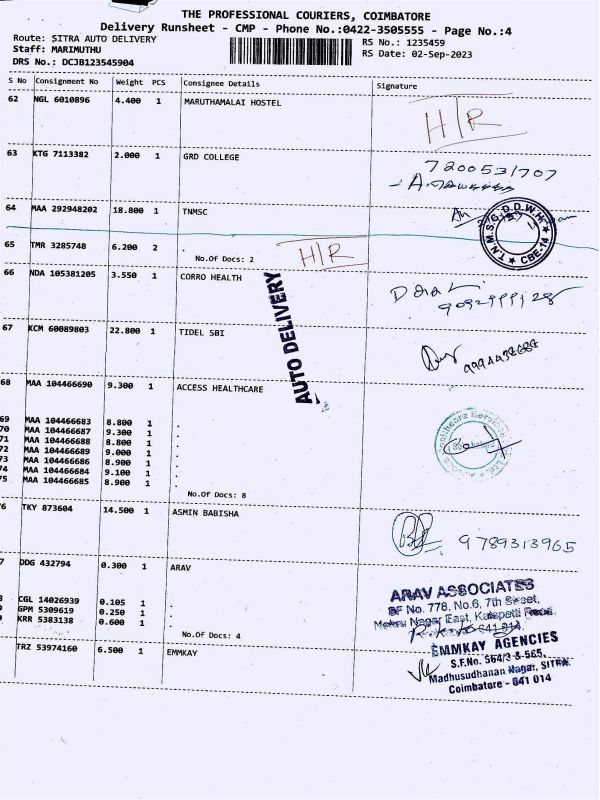 THE PROFESSIONAL COURIERS, COIMBATORE
Delivery Runsheet - CMP - Phone No.:0422-3505555 - Page No.:4
Route: SITRA AUTO DELIVERY RS No.: 1235459
Staff: MARIMUTHU RS Date: 02-Sep-2023
DRS No.: DCJB123545904
S No Consignment No Weight PCS Consignee Details Signature
62 NGL 6010896 4.400 1 MARUTHAMALAI HOSTEL H/R
63 KTG 7113382 2.000 1 GRD COLLEGE 7200531707
64 MAA 292948202 18.800 1 TNMSC
T.N.M.S.C. D.D.W.H. CBE-14
65 TMR 3285748 6.200 2 . H/R
No.Of Docs: 2
66 NDA 105381205 3.550 1 CORRO HEALTH
AUTO DELIVERY
67 KCM 60089803 22.800 1 TIDEL SBI
68 MAA 104466690 9.300 1 ACCESS HEALTHCARE
69 MAA 104466683 8.800 1 .
70 MAA 104466687 9.300 1 .
71 MAA 104466688 8.800 1 .
72 MAA 104466689 9.000 1 .
73 MAA 104466686 8.900 1 .
74 MAA 104466684 9.100 1 .
75 MAA 104466685 8.900 1 .
No.Of Docs: 8
76 TKY 873604 14.500 1 ASMIN BABISHA 9789313965
7 DDG 432794 0.300 1 ARAV
ARAV ASSOCIATES
SF No. 778, No.6, 7th Street,
Nehru Nagar East, Kalapatti Road,
641 014
CGL 14026939 0.105 1 .
GPM 5309619 0.250 1 .
KRR 5383138 0.600 1 .
No.Of Docs: 4
TRZ 53974160 6.500 1 EMMKAY
EMMKAY AGENCIES
S.F.No. 564/3 & 565,
Madhusudhanan Nagar, SITRA
Coimbatore - 641 014